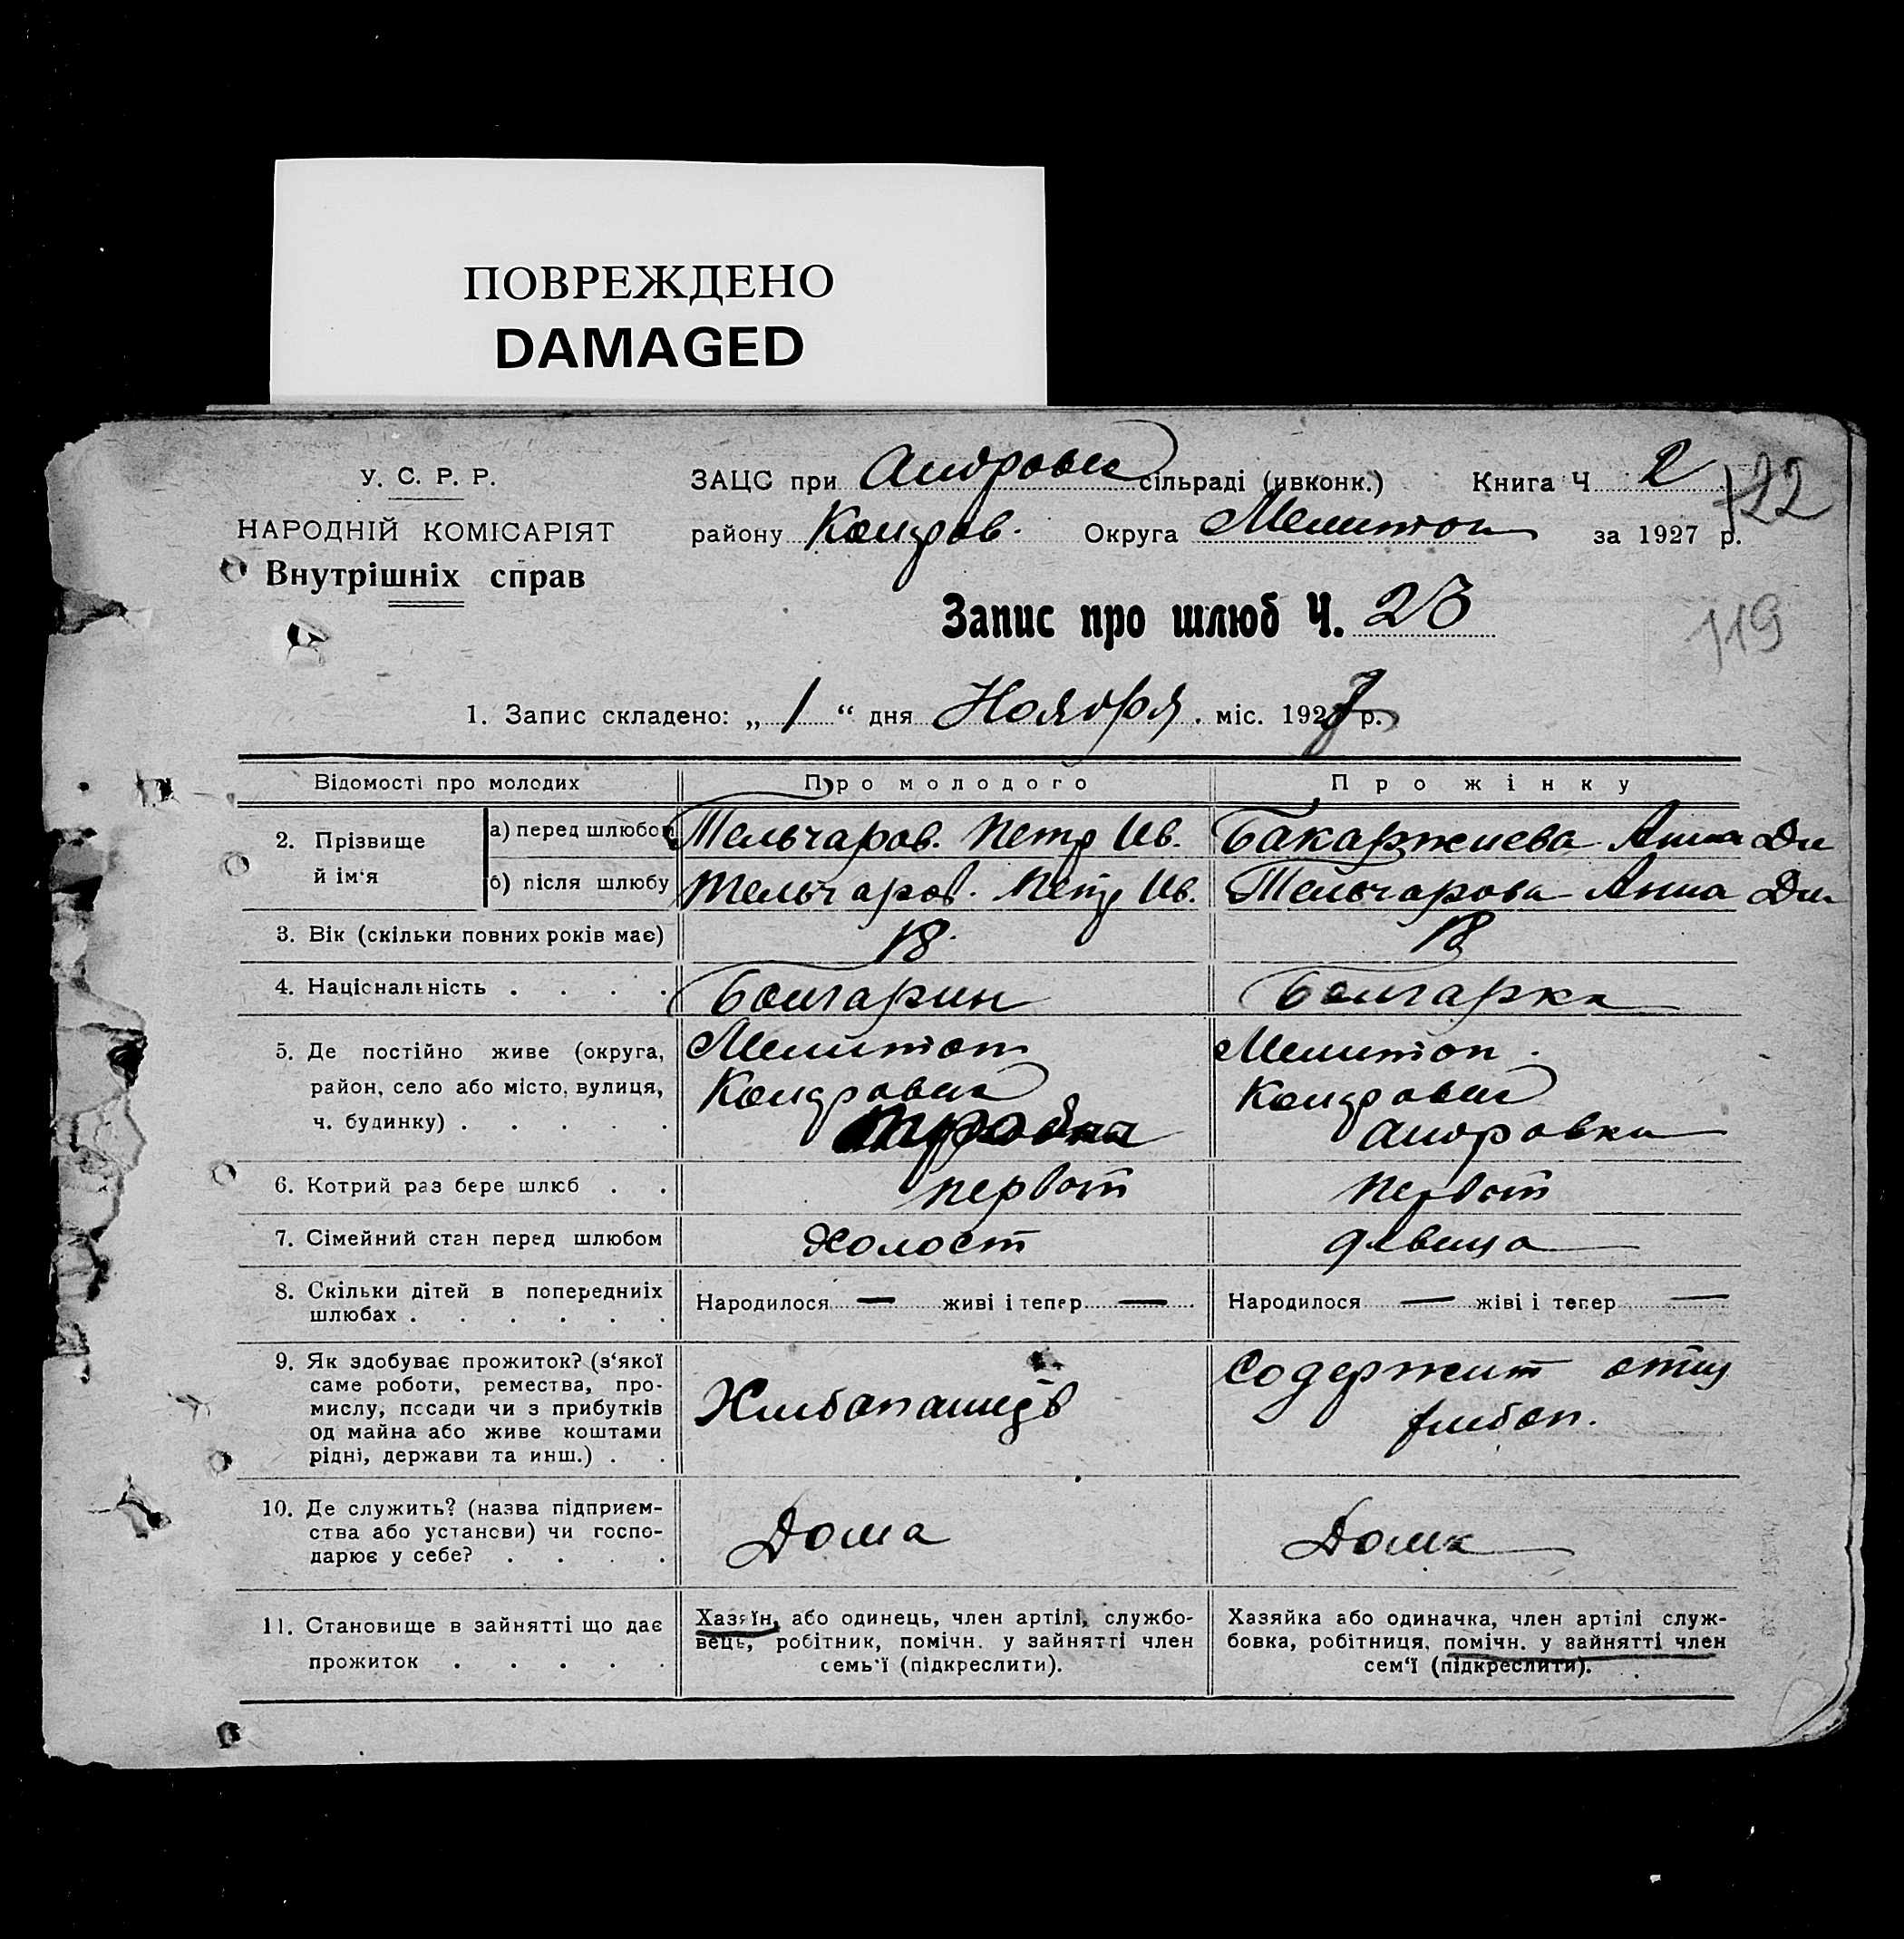 ПОВРЕЖДЕНО
DAMAGED
У. С. Р. Р.
НАРОДНІЙ КОМІСАРІЯТ
Внутрішніх справ
ЗАЦС при Андровск сільраді (ивконк.) Книга Ч 2
122
району Кондров. Округа Мелитоп за 1927 р.
Запис про шлюб Ч. 23
119
1. Запис складено: „ 1 “ дня Ноября міс. 1927 р.
Відомості про молодих Про молодого Про жінку
2. Прізвище й ім‘я
а) перед шлюбом Тельчаров. Петр Ив. Бакаржиева Анна Дм
б) після шлюбу Тельчаров. Петр Ив. Тельчарова Анна Дм
3. Вік (скільки повних років має) 18. 18
4. Національність . . . . Болгарин Болгарка
5. Де постійно живе (округа, Мелитоп Мелитоп.
район, село або місто, вулиця, Кондровск Кондровск
ч. будинку) . . . . . Андровка
6. Котрий раз бере шлюб . . первый первый
7. Сімейний стан перед шлюбом Холост девица
8. Скільки дітей в попередниіх Народилося — живі і тепер — Народилося — жіві і тепер —
шлюбах . . . . . .
9. Як здобуває прожиток? (з‘якої Содержит отец
саме роботи, ремества, про- Хлебопашец
мислу, посади чи з прибутків хлебоп.
од майна або живе коштами
рідні, держави та инш.) . .
10. Де служить? (назва підприєм-
ства або установи) чи госпо- Дома Дома
дарює у себе? . . . .
11. Становище в зайнятті що дає
прожиток . . . . .
Хазяїн, або одинець, член артілі, службо-
вець, робітник, помічн. у зайнятті член
семь‘ї (підкреслити).
Хазяйка або одиначка, член артілі служ-
бовка, робітниця, помічн. у зайнятті член
сем‘ї (підкреслити).